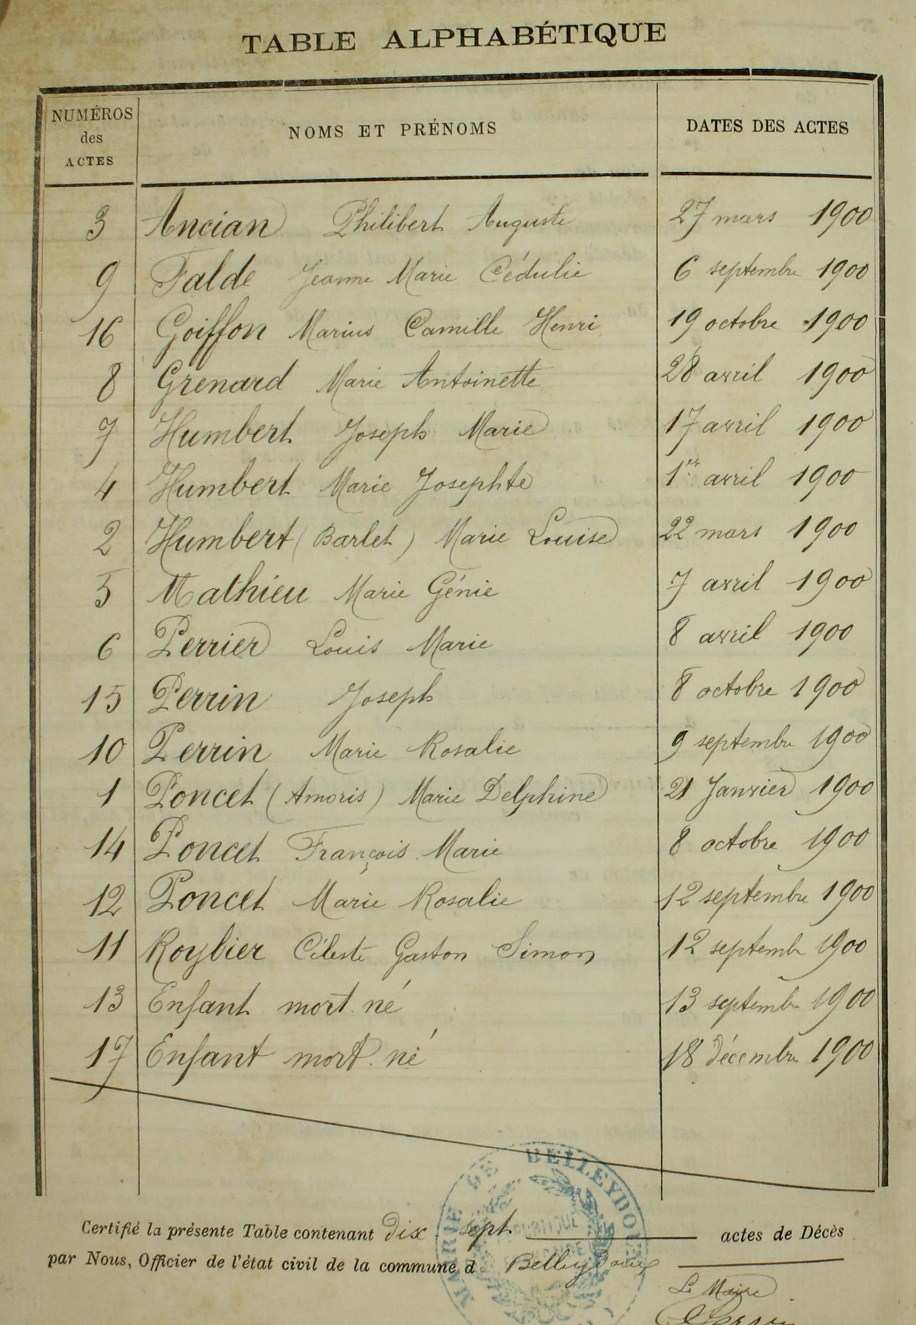 TABLE ALPHABÉTIQUE
NUMÉROS des ACTES NOMS ET PRÉNOMS DATES DES ACTES
3 Ancian Philibert Auguste 27 mars 1900
9 Falde Jeanne Marie Cédulie 6 septembre 1900
16 Goiffon Marius Camille Henri 19 octobre 1900
8 Grenard Marie Antoinette 28 avril 1900
7 Humbert Joseph Marie 17 avril 1900
4 Humbert Marie Josephte 1er avril 1900
2 Humbert (Barlet) Marie Louise 22 mars 1900
5 Mathieu Marie Génie 7 avril 1900
6 Perrier Louis Marie 8 avril 1900
15 Perrin Joseph 8 octobre 1900
10 Perrin Marie Rosalie 9 septembre 1900
1 Poncet (Amoris) Marie Delphine 21 Janvier 1900
14 Poncet François Marie 8 octobre 1900
12 Poncet Marie Rosalie 12 septembre 1900
11 Roybier Céleste Gaston Simon 12 septembre 1900
13 Enfant mort né 13 septembre 1900
17 Enfant mort né 18 décembre 1900
Certifié la présente Table contenant dix sept actes de Décès
par Nous, Officier de l'état civil de la commune d Belleydoux
MAIRIE DE BELLEYDOUX
Le Maire